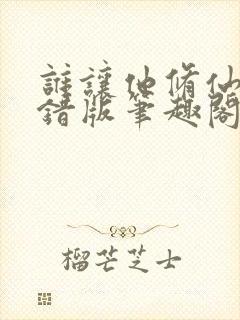 誰讓他脩仙
錯版筆趣閣
榴芒芝士